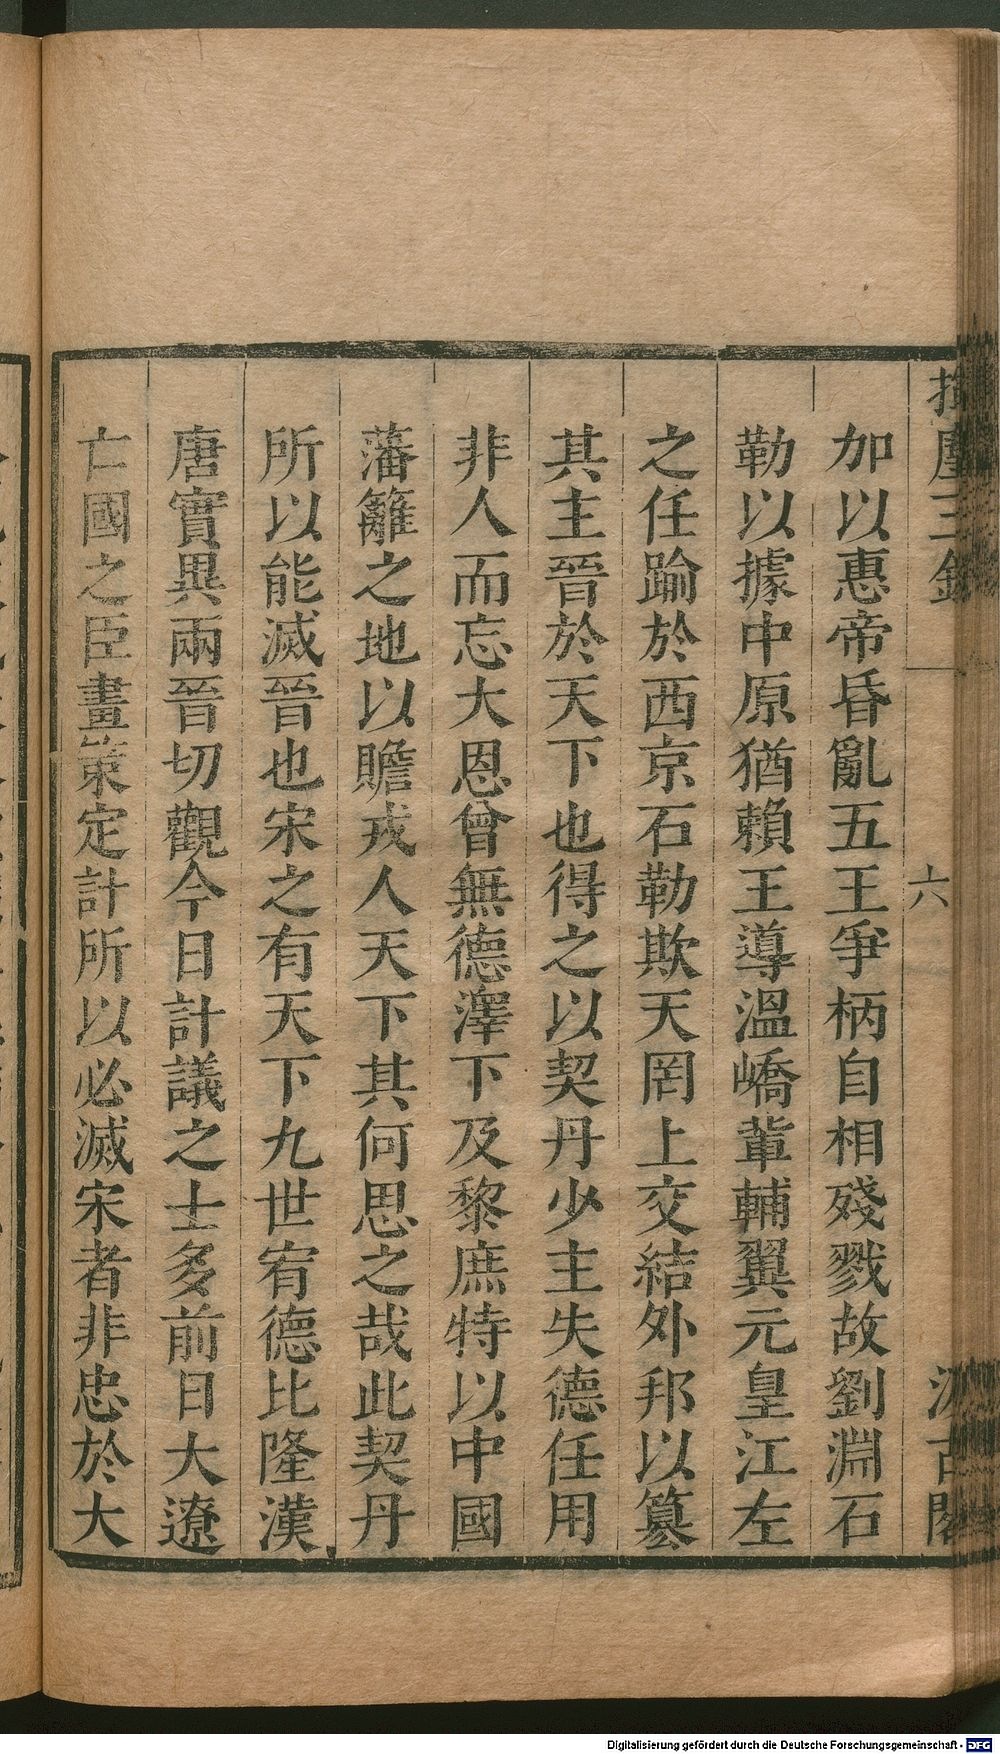 揮麈三錄
六
汲古閣
加以惠帝昏亂五王爭柄自相殘戮故劉淵石
勒以據中原猶賴王導溫嶠輩輔翼元皇江左
之任踰於西京石勒欺天罔上交結外邦以篡
其主晉於天下也得之以契丹少主失德任用
非人而忘大恩曾無德澤下及黎庶特以中國
藩籬之地以贍戎人天下其何思之哉此契丹
所以能滅晉也宋之有天下九世宥德比隆漢
唐實異兩晉切觀今日計議之士多前日大遼
亡國之臣畫策定計所以必滅宋者非忠於大
Digitalisierung gefördert durch die Deutsche Forschungsgemeinschaft - DFG